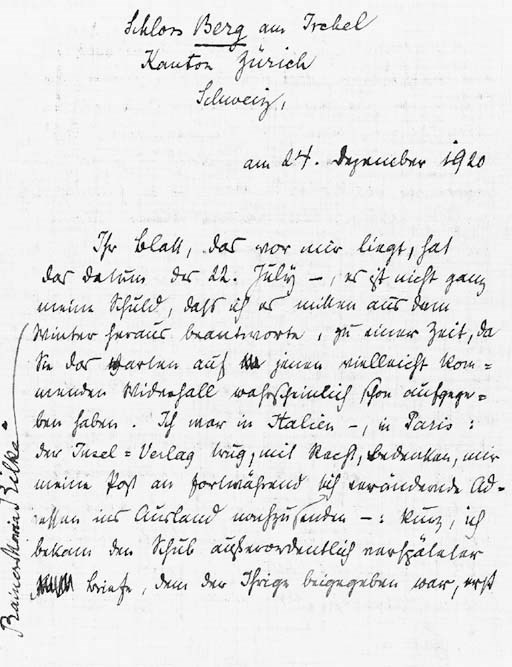 Schloss Berg am Irchel
Kanton Zürich
Schweiz,
am 24. Dezember 1920
Ihr Blatt, das vor mir liegt, hat
das Datum des 22. July –, es ist nicht ganz
meine Schuld, dass ich es mitten aus dem
Winter heraus beantworte, zu einer Zeit, da
Sie das Warten auf jenen vielleicht kom=
menden Widerhall wahrscheinlich schon aufgege=
ben haben. Ich war in Italien –, in Paris :
der Insel=Verlag trug, mit Recht, Bedenken, mir
meine Post an fortwährend sich verändernde Ad=
ressen ins Ausland nachzusenden – : kurz, ich
bekam den Schub außerordentlich verspäteter
Briefe, dem der Ihrige beigegeben war, erst
Rainer Maria Rilke